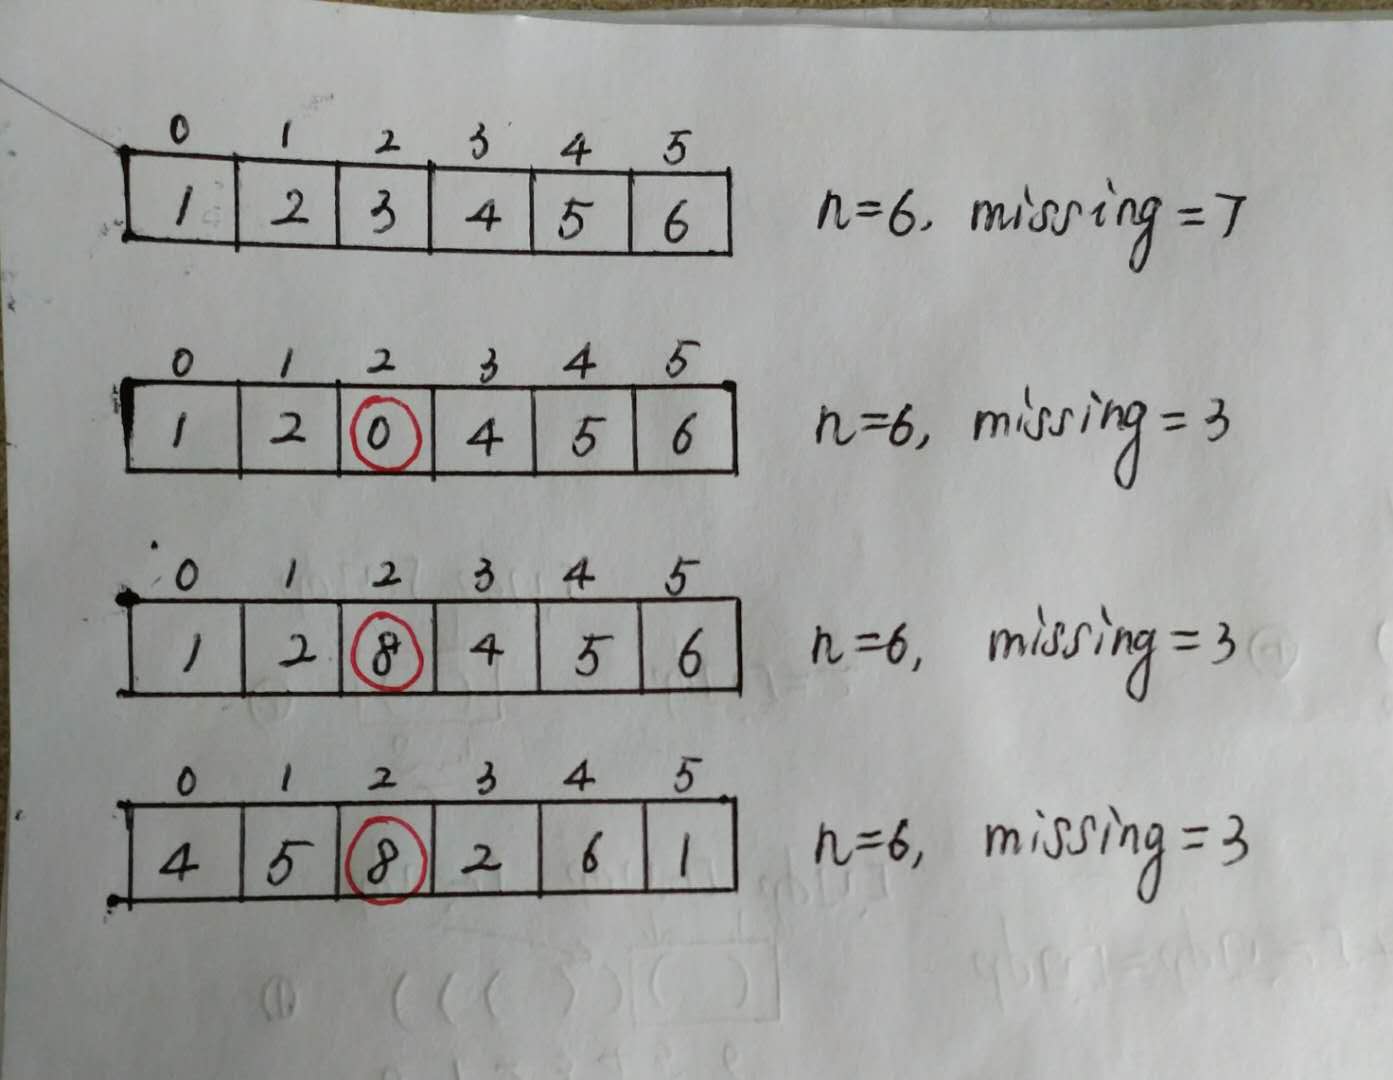 0 1 2 3 4 5
1 2 3 4 5 6 n=6, missing=7
0 1 2 3 4 5
1 2 0 4 5 6 n=6, missing=3
0 1 2 3 4 5
1 2 8 4 5 6 n=6, missing=3
0 1 2 3 4 5
4 5 8 2 6 1 n=6, missing=3